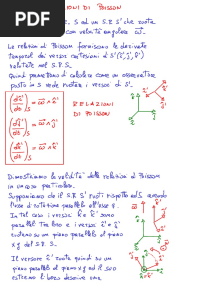 PDF
IONI DI POISSON
S.F.S. S ed un S.F. S' che ruota
con velocità angolare ω⃗.
Le relazioni di Poisson forniscono le derivate
temporali dei versori cartesiani di S' (î', ĵ', k̂')
valutate nel S.F. S.
Quindi permettono di calcolare come un osservatore
posto in S vede ruotare i versori di S'.
(dî'/dt)_S = ω⃗ ∧ î'
(dĵ'/dt)_S = ω⃗ ∧ ĵ'
(dk̂'/dt)_S = ω⃗ ∧ k̂'
RELAZIONI
DI POISSON
Dimostriamo la validità delle relazioni di Poisson
in un caso particolare.
Supponiamo che il S.F. S' ruoti rispetto ad S avendo
l'asse di rotazione parallelo all'asse z.
In tal caso i versori k̂ e k̂' sono
paralleli tra loro e i versori î' e ĵ'
ruotano su un piano parallelo al piano
xy del S.F. S.
Il versore î' ruota quindi su un
piano parallelo al piano xy ed il suo
estremo libero descrive una